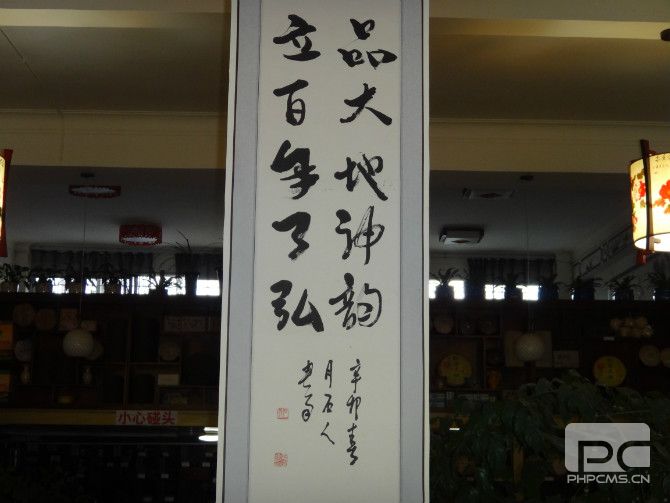 品大地神韵
立百年了弘
辛卯春
月石人
小心碰头
PC
PHPCMS.CN